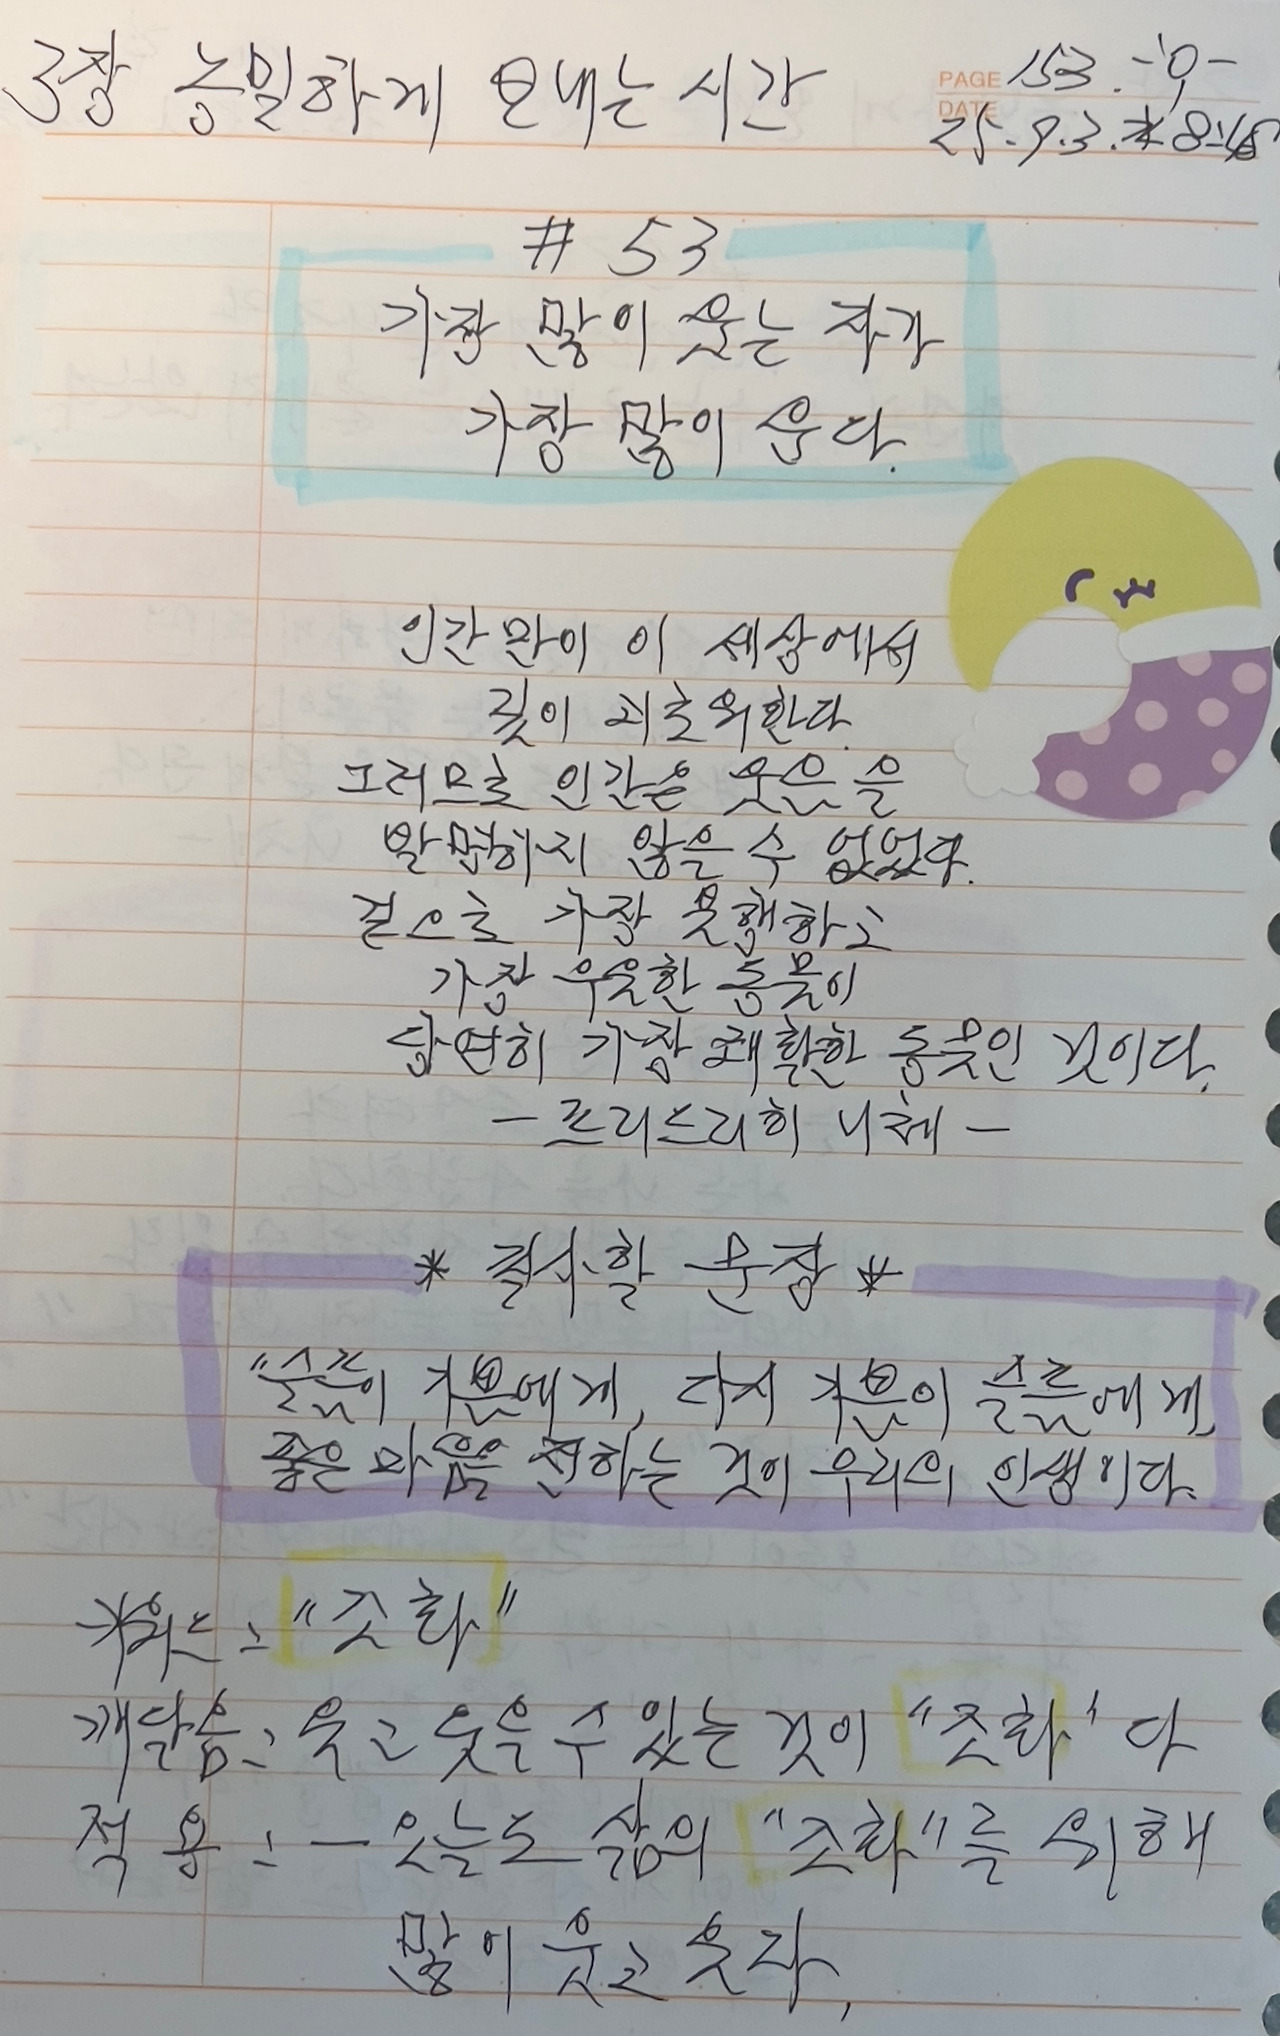 3장 농밀하게 보내는 시간
PAGE 153.
DATE 25.9.3.水
# 53
가장 많이 웃는 자가
가장 많이 운다.
인간만이 이 세상에서
깊이 괴로워한다.
그러므로 인간은 웃음을
발명하지 않을 수 없었다.
가장 불행하고
가장 우울한 동물이
당연히 가장 쾌활한 동물인 것이다.
- 프리드리히 니체 -
* 필사할 문장 *
"슬픔이 기쁨에게, 다시 기쁨이 슬픔에게,
좋은 마음을 전하는 것이 우리의 인생이다.
키워드: "조화"
깨달음: 울고 웃을 수 있는 것이 "조화"다
적용: - 오늘도 삶의 "조화"를 위해
많이 웃고 울자.